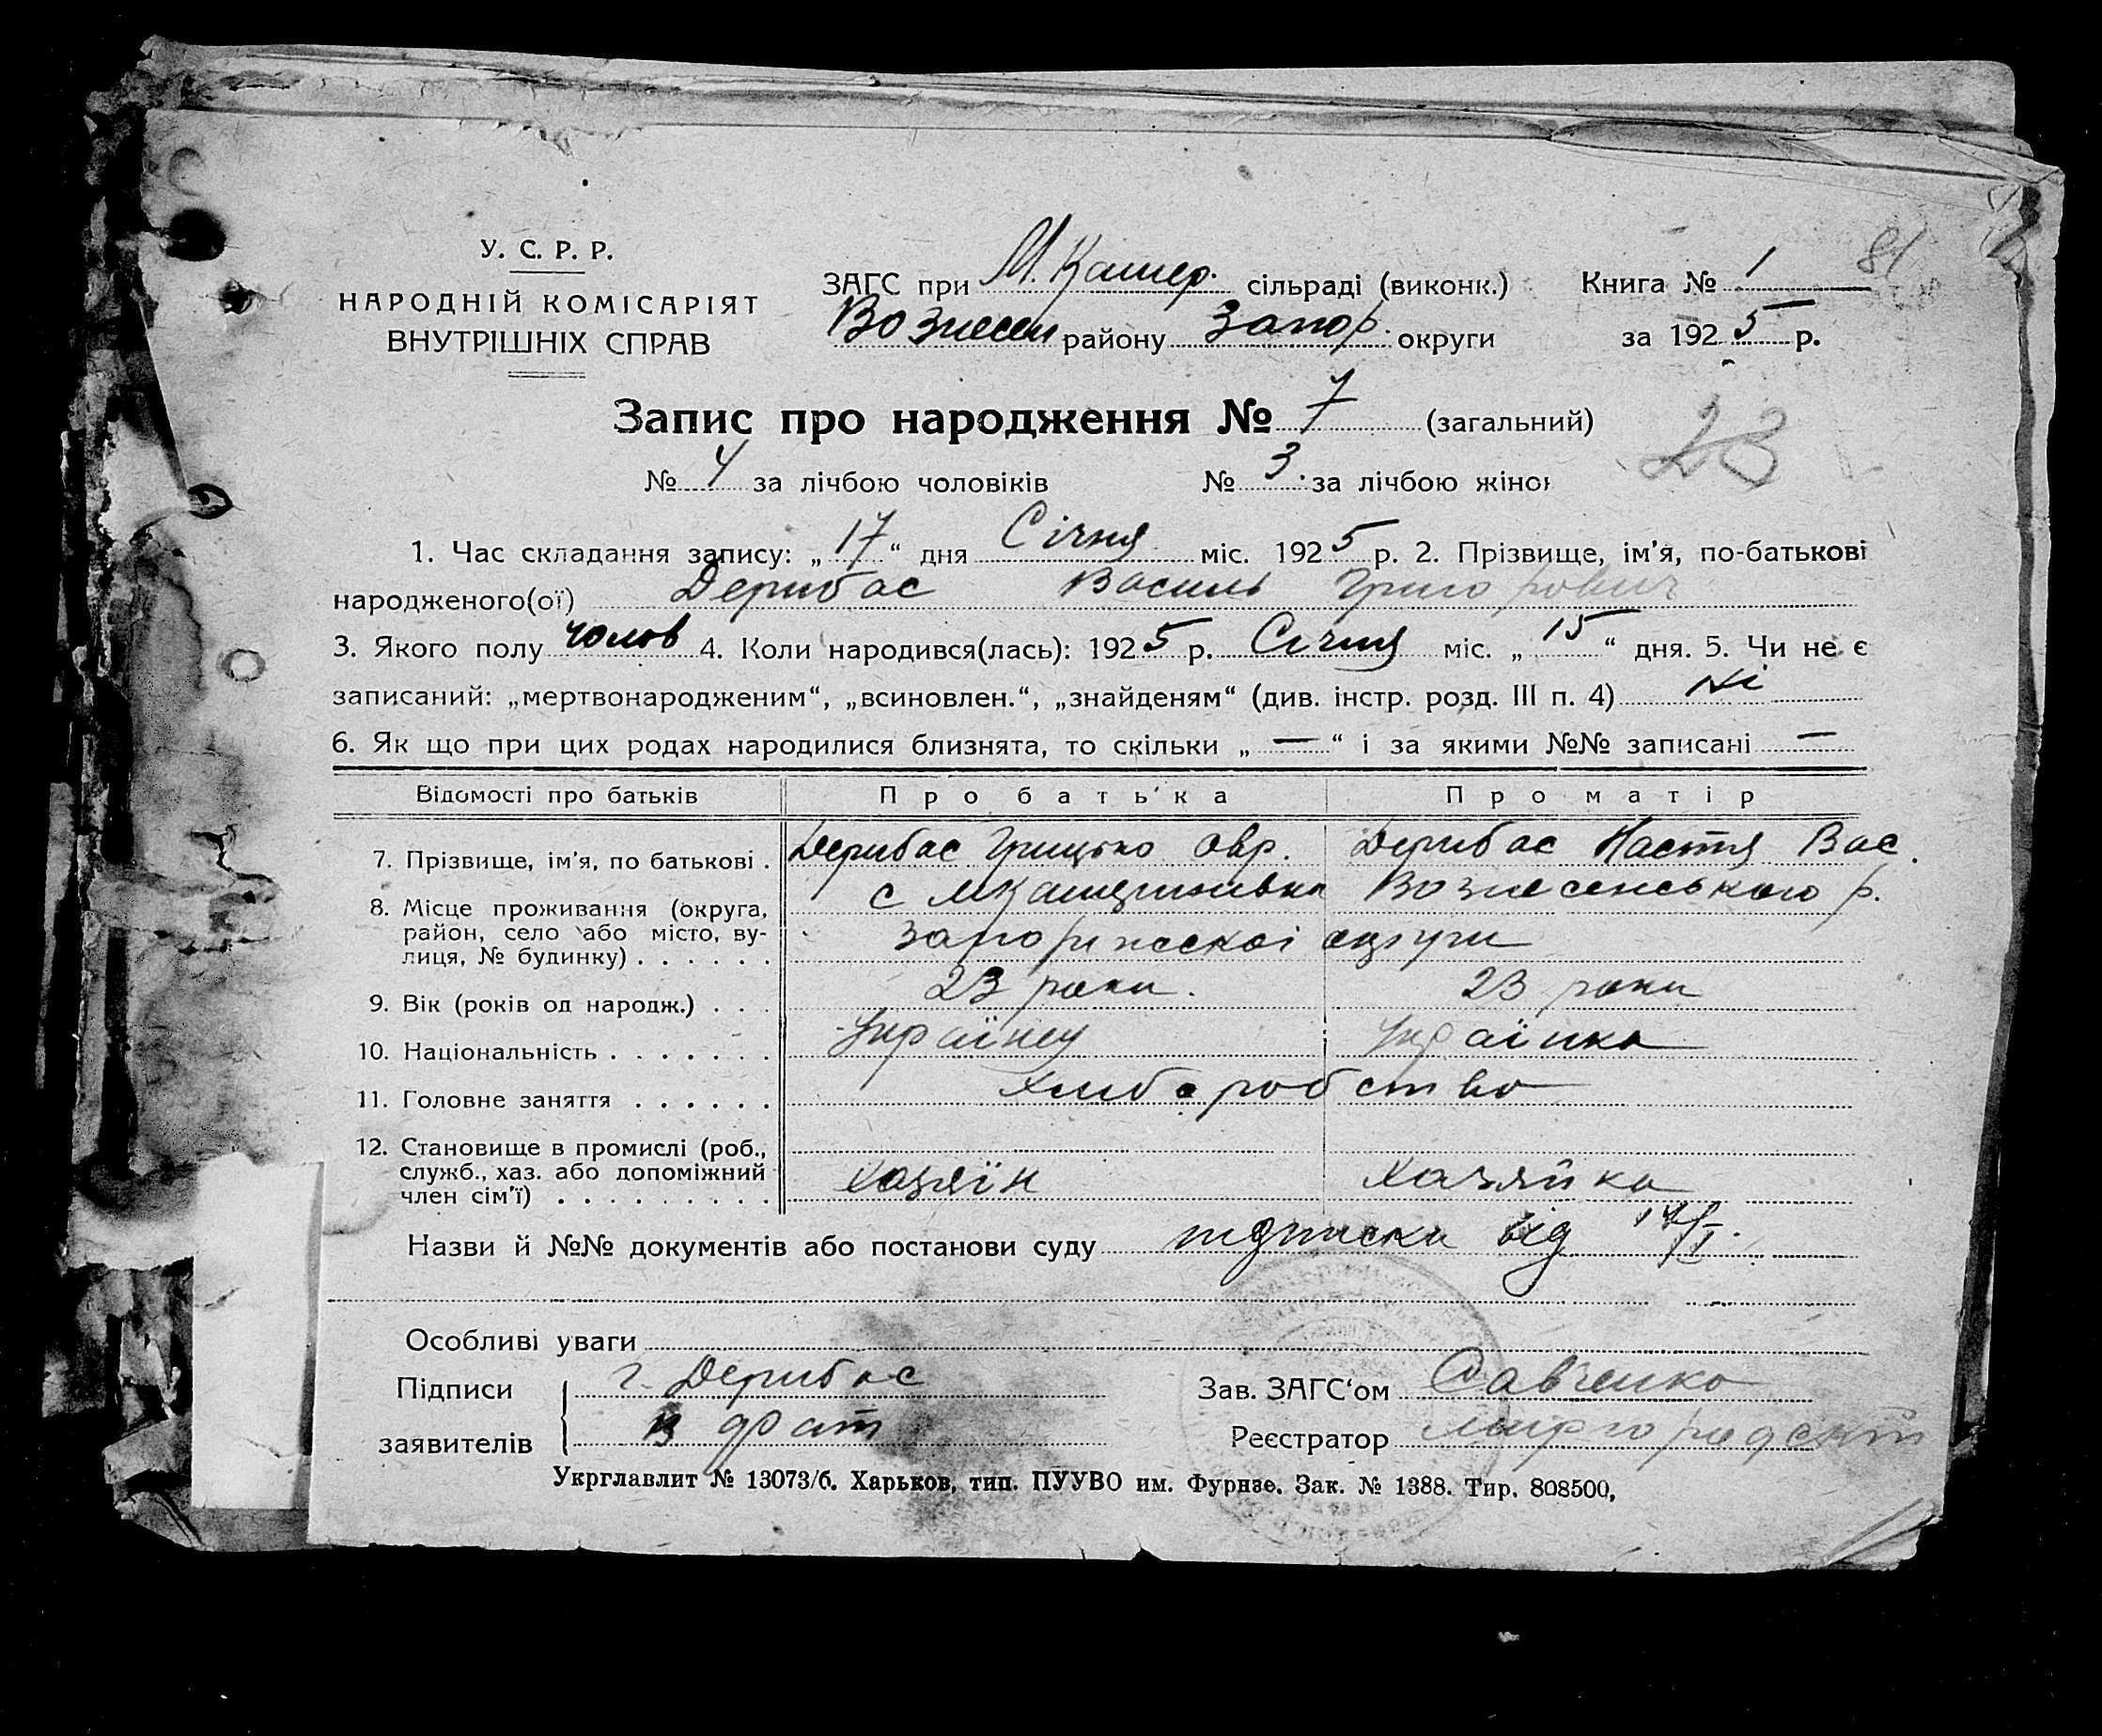 81
У. С. Р. Р.
НАРОДНІЙ КОМІСАРІЯТ
ВНУТРІШНІХ СПРАВ
ЗАГС при М. Катер. сільраді (виконк.) Книга № 1
Вознесен району Запор. округи за 1925 р.
Запис про народження № 7 (загальний)
23
№ 4 за лічбою чоловіків № 3 за лічбою жінок
1. Час складання запису: „17“ дня Січня міс. 1925 р. 2. Прізвище, ім'я, по-батькові
народженого(ої) Дерибас Василь Григорович
3. Якого полу чолов 4. Коли народився(лась): 1925 р. Січня міс. „15“ дня. 5. Чи не є
записаний: „мертвонародженим“, „всиновлен.“, „знайденям“ (див. інстр. розд. III п. 4) Ні
6. Як що при цих родах народилися близнята, то скільки „—“ і за якими №№ записані —
Відомості про батьків Про батька Про матір
7. Прізвище, ім'я, по батькові . Дерибас Грицько Овр. Дерибас Настя Вас.
8. Місце проживання (округа, с Вознесенського р.
район, село або місто, ву- округи
лиця, № будинку) . . . . . .
9. Вік (років од народж.) . . . 23 роки. 23 роки
10. Національність . . . . . . . Українец Українка
11. Головне заняття . . . . . . Хлиборобство
12. Становище в промислі (роб.,
служб., хаз. або допоміжний Хазяїн Хазяйка
член сім'ї) . . . . . . . . .
Назви й №№ документів або постанови суду від 17/I.
Особливі уваги
Підписи Г. Дерибас Зав. ЗАГС‘ом Савченко
заявителів Реєстратор
Укрглавлит № 13073/б. Харьков, тип. ПУУВО им. Фурнзе. Зак. № 1388. Тир. 808500,